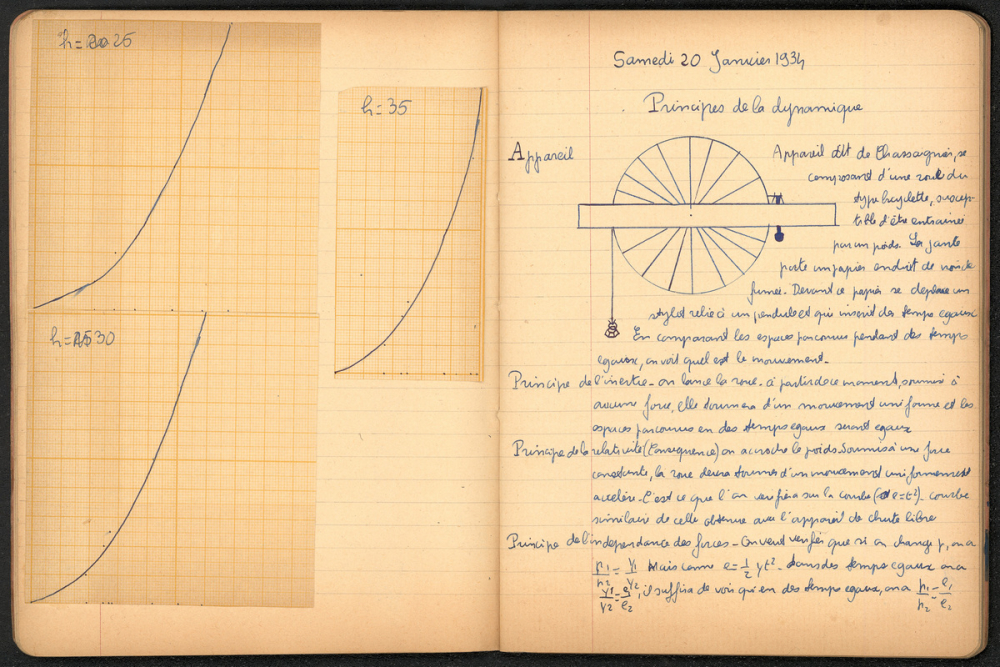 h = 25
h = 35
h = 30
Samedi 20 Janvier 1934
Principes de la dynamique
Appareil
Appareil dit de Chassagny, se
composant d'une roue du
type bicyclette, suscep-
tible d'être entrainée
par un poids. La jante
porte un papier enduit de noir de
fumée. Devant ce papier se déplace un
stylet relié à un pendule et qui inscrit des temps egaux
En comparant les espaces parcourus pendant des temps
egaux, on voit quel est le mouvement.
Principe de l'inertie - on lance la roue. à partir de ce moment, soumise à
aucune force, elle tournera d'un mouvement uniforme et les
espaces parcourus en des temps egaux seront egaux
Principe de la relativité (Conséquence) on accroche le poids. Soumis à une force
constante, la roue devra tourner d'un mouvement uniformément
accéléré. C'est ce que l'on vérifiera sur la courbe (e=t²). courbe
similaire de celle obtenue avec l'appareil de chute libre
Principe de l'indépendance des forces - On veut vérifier que si on change p, on a
p₁/p₂ = γ₁/γ₂ Mais comme e = 1/2 γt² - dans des temps egaux on a
γ₁/γ₂ = e₁/e₂, il suffira de voir qu'en des temps egaux, on a p₁/p₂ = e₁/e₂